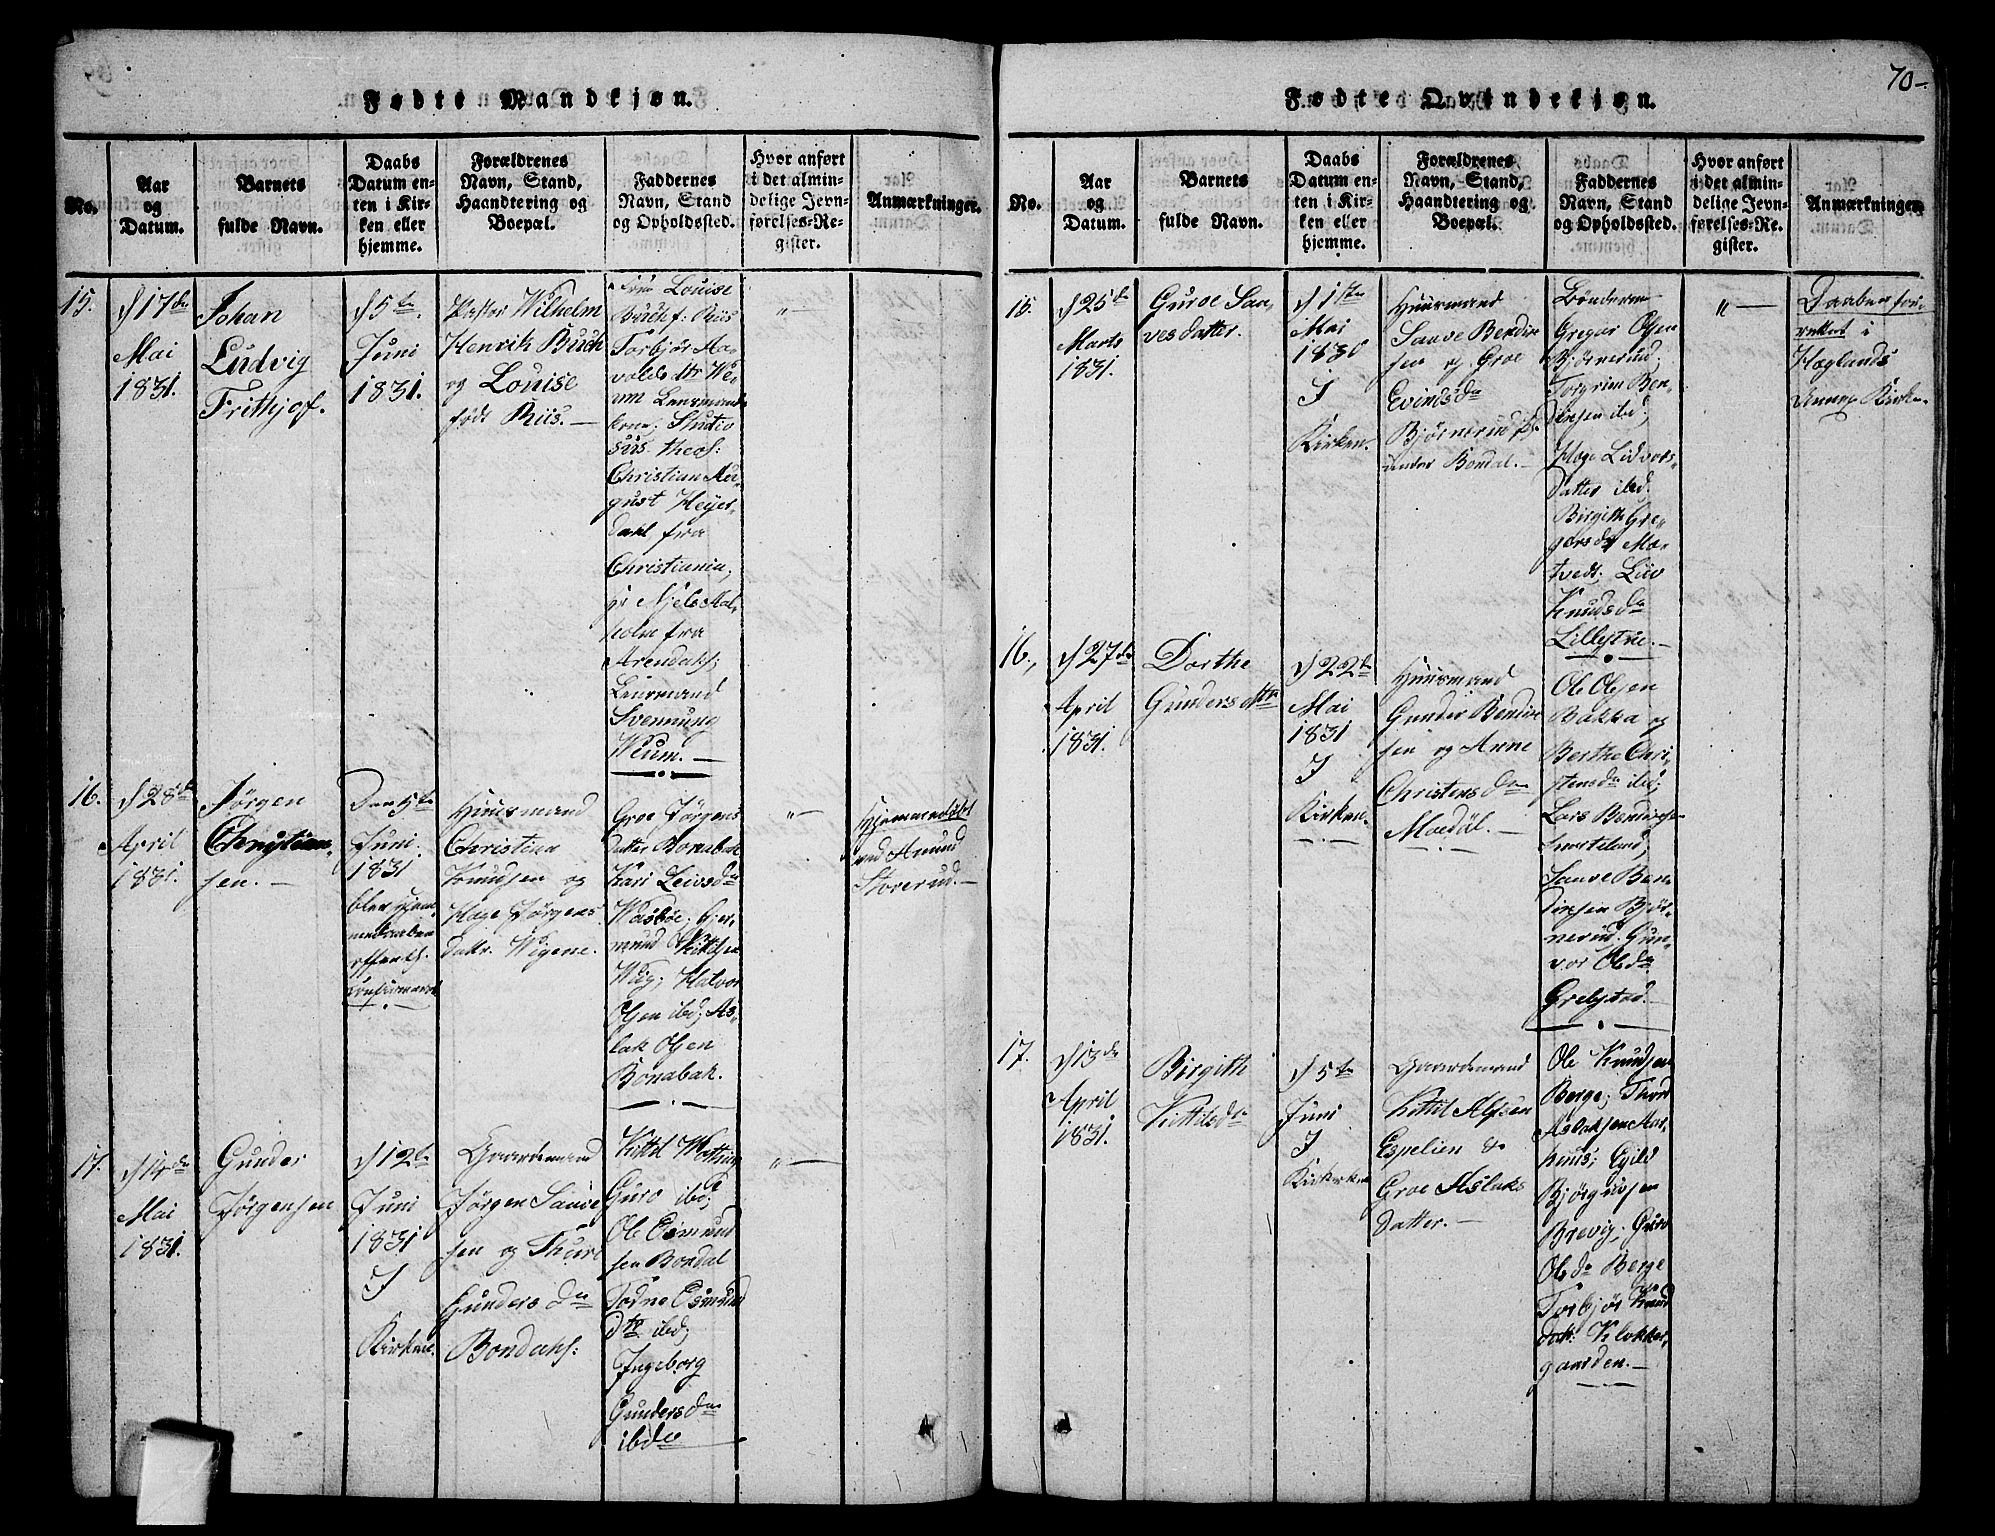 70-
Fødte Mandkjøn.
No.
Aar
og
Datum.
Barnets
fulde Navn.
Daabs
Datum en-
ten i Kir-
ken eller
hjemme.
Forældrenes
Navn, Stand,
Haandtering og
Boepæl.
Faddernes
Navn, Stand
og Opholdssted.
Hvor anført
i det almin-
delige Jevn-
førelses-Re-
gister.
Anmærkninger.
15.
d 17de
Mai
1831.
Johan
Ludvig
Frithjof.
d 5te
Juni
1831.
Pastor Wilhelm
Henrik Buch
og Louise
født Riis. —
Frue Louise
Buch f. Riis
Torbjør Aa-
valds dtr We-
um Lensmands
kone; Studio
sus theol:
Christian Au-
gust Heyer-
dahl fra
Christiania;
hr Niels Mal-
holm fra
Arendahl;
Lensmand
Svennung
Weum. —
" —
16.
d 28de
April
1831.
Jørgen
Christian-
sen. —
Den 5te
Juni
1831
blev hjem-
medaaben
offentl.
confirmeret
Huusmand
Christian
Knudsen og
Hæge Jørgens
datr. Wigene.
Groe Jørgens
datter Bonabak
Kari Leivsda
Waasbøe; Gjer-
mund Kittilsen
Wiig; Halvor
Olsen ibd; As-
lak Olsen
Bonabak.
" —
Hjemmedøbt
ved Amund
Storerud. —
17.
d 14de
Mai
1831.
Gunder
Jørgensen
d 12te
Juni
1831
I
Kirken.
Gaardemand
Jørgen Saave
sen og Thuri
Gunders da
Bondahl:
Kittel
Guro ibd;
Ole Esmund
sen Bondal
Todne Esmund
dtr ibd;
Ingeborg
Gundersda
ibde
" —
Fødte Qvindekjøn.
No.
Aar
og
Datum.
Barnets
fulde Navn.
Daabs
Datum en-
ten i Kir-
ken eller
hjemme.
Forældrenes
Navn, Stand,
Haandtering og
Boepæl.
Faddernes
Navn, Stand
og Opholdssted.
Hvor anført
i det almin-
delige Jevn-
førelses-Re-
gister.
Anmærkninger
15.
d 25de
Marts
1831.
Guroe Saa-
vesdatter.
d 1ste
Mai
1830
I
Kirken.
Huusmand
Saave Bendix
sen og Groe
Evindsda
Bjørnerud
under Bondal. —
Bønderne
Gregar Olsen
Bjørnerud;
Torgrim Ben-
dixsen ibd;
Hæge Lidvors-
datter ibd.
Birgith Gre-
garsda Mæ-
tvedt; Liv
Knudsda
Lillestue. —
" —
Daaben for-
rettet i
Høglands
Annex Kirke.
16.,
d 27de
April
1831.
Dorthe
Gunders dtr
d 22de
Mai
1831
I
Kirken.
Huusmand
Gunder Bendix
sen og Anne
Christensda
Moedøl. —
Ole Olsen
Bakka og
Berthe Chri-
stensda ibd;
Lars Bendixsen
Saave Ben-
dixsen Bjør-
nerud. Gun-
vor Olsda
Grebsted. —
17.
d 13de
April
1831.
Birgith
Kittilsda
d 5te
Juni
I
Kirkerken
Gaardemand
Kittil Alfsen
Espelien &
Groe Aslaks
datter. —
Ole Knudsen
Berge; Thord
Aslaksen Aar-
huus; Egild
Bjørgufsen
Brevig; Guro
Olsda Berge
Torbjør Knud
datr. Klokker-
gaarden. —